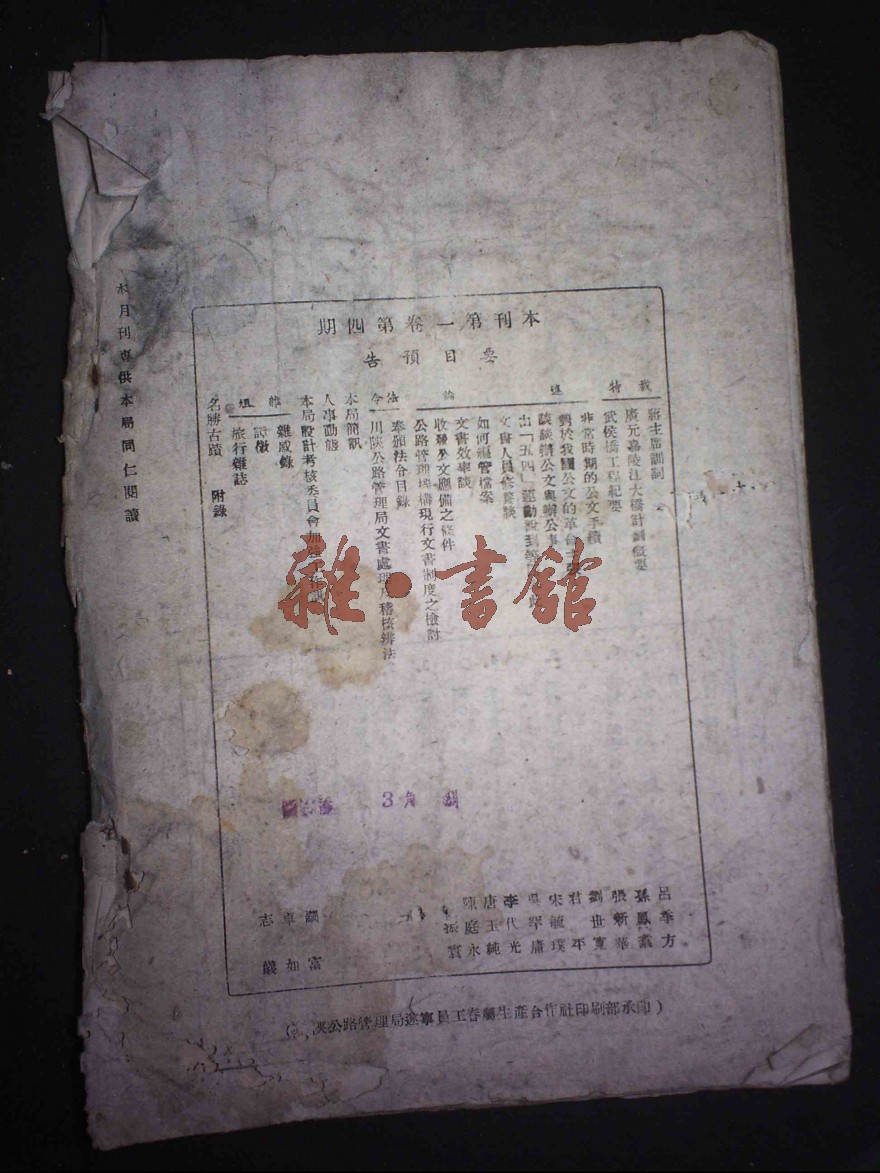 本刊第一卷第四期
要目預告
特載
蔣主席訓詞
廣元嘉陵江大橋計劃概要
武侯橋工程紀要
論述
非常時期的公文手續
對於我國公文的革命
談談辦公文與辦公事
出「五四」運動說到
文書人員修養談
如何編管檔案
文書效率談
收發公文應備之條件
公路管理機構現行文書制度之檢討
法令
奉頒法令目錄
川陝公路管理局文書處理及稽核辦法
本局簡訊
人事動態
本局設計考核委員會加強
雜俎
雜感錄
旅行雜誌
名勝古蹟 附錄
呂季方
孫鳳
張新華
劉世寬
君平
宋毓璞
吳罕庸
李代光
唐玉純
陳庭永
振寰
富
卓如
志儀
本月刊專供本局同仁閱讀
3角
雜·書館
陝公路管理局遂寧員工眷屬生產合作社印刷部承印)